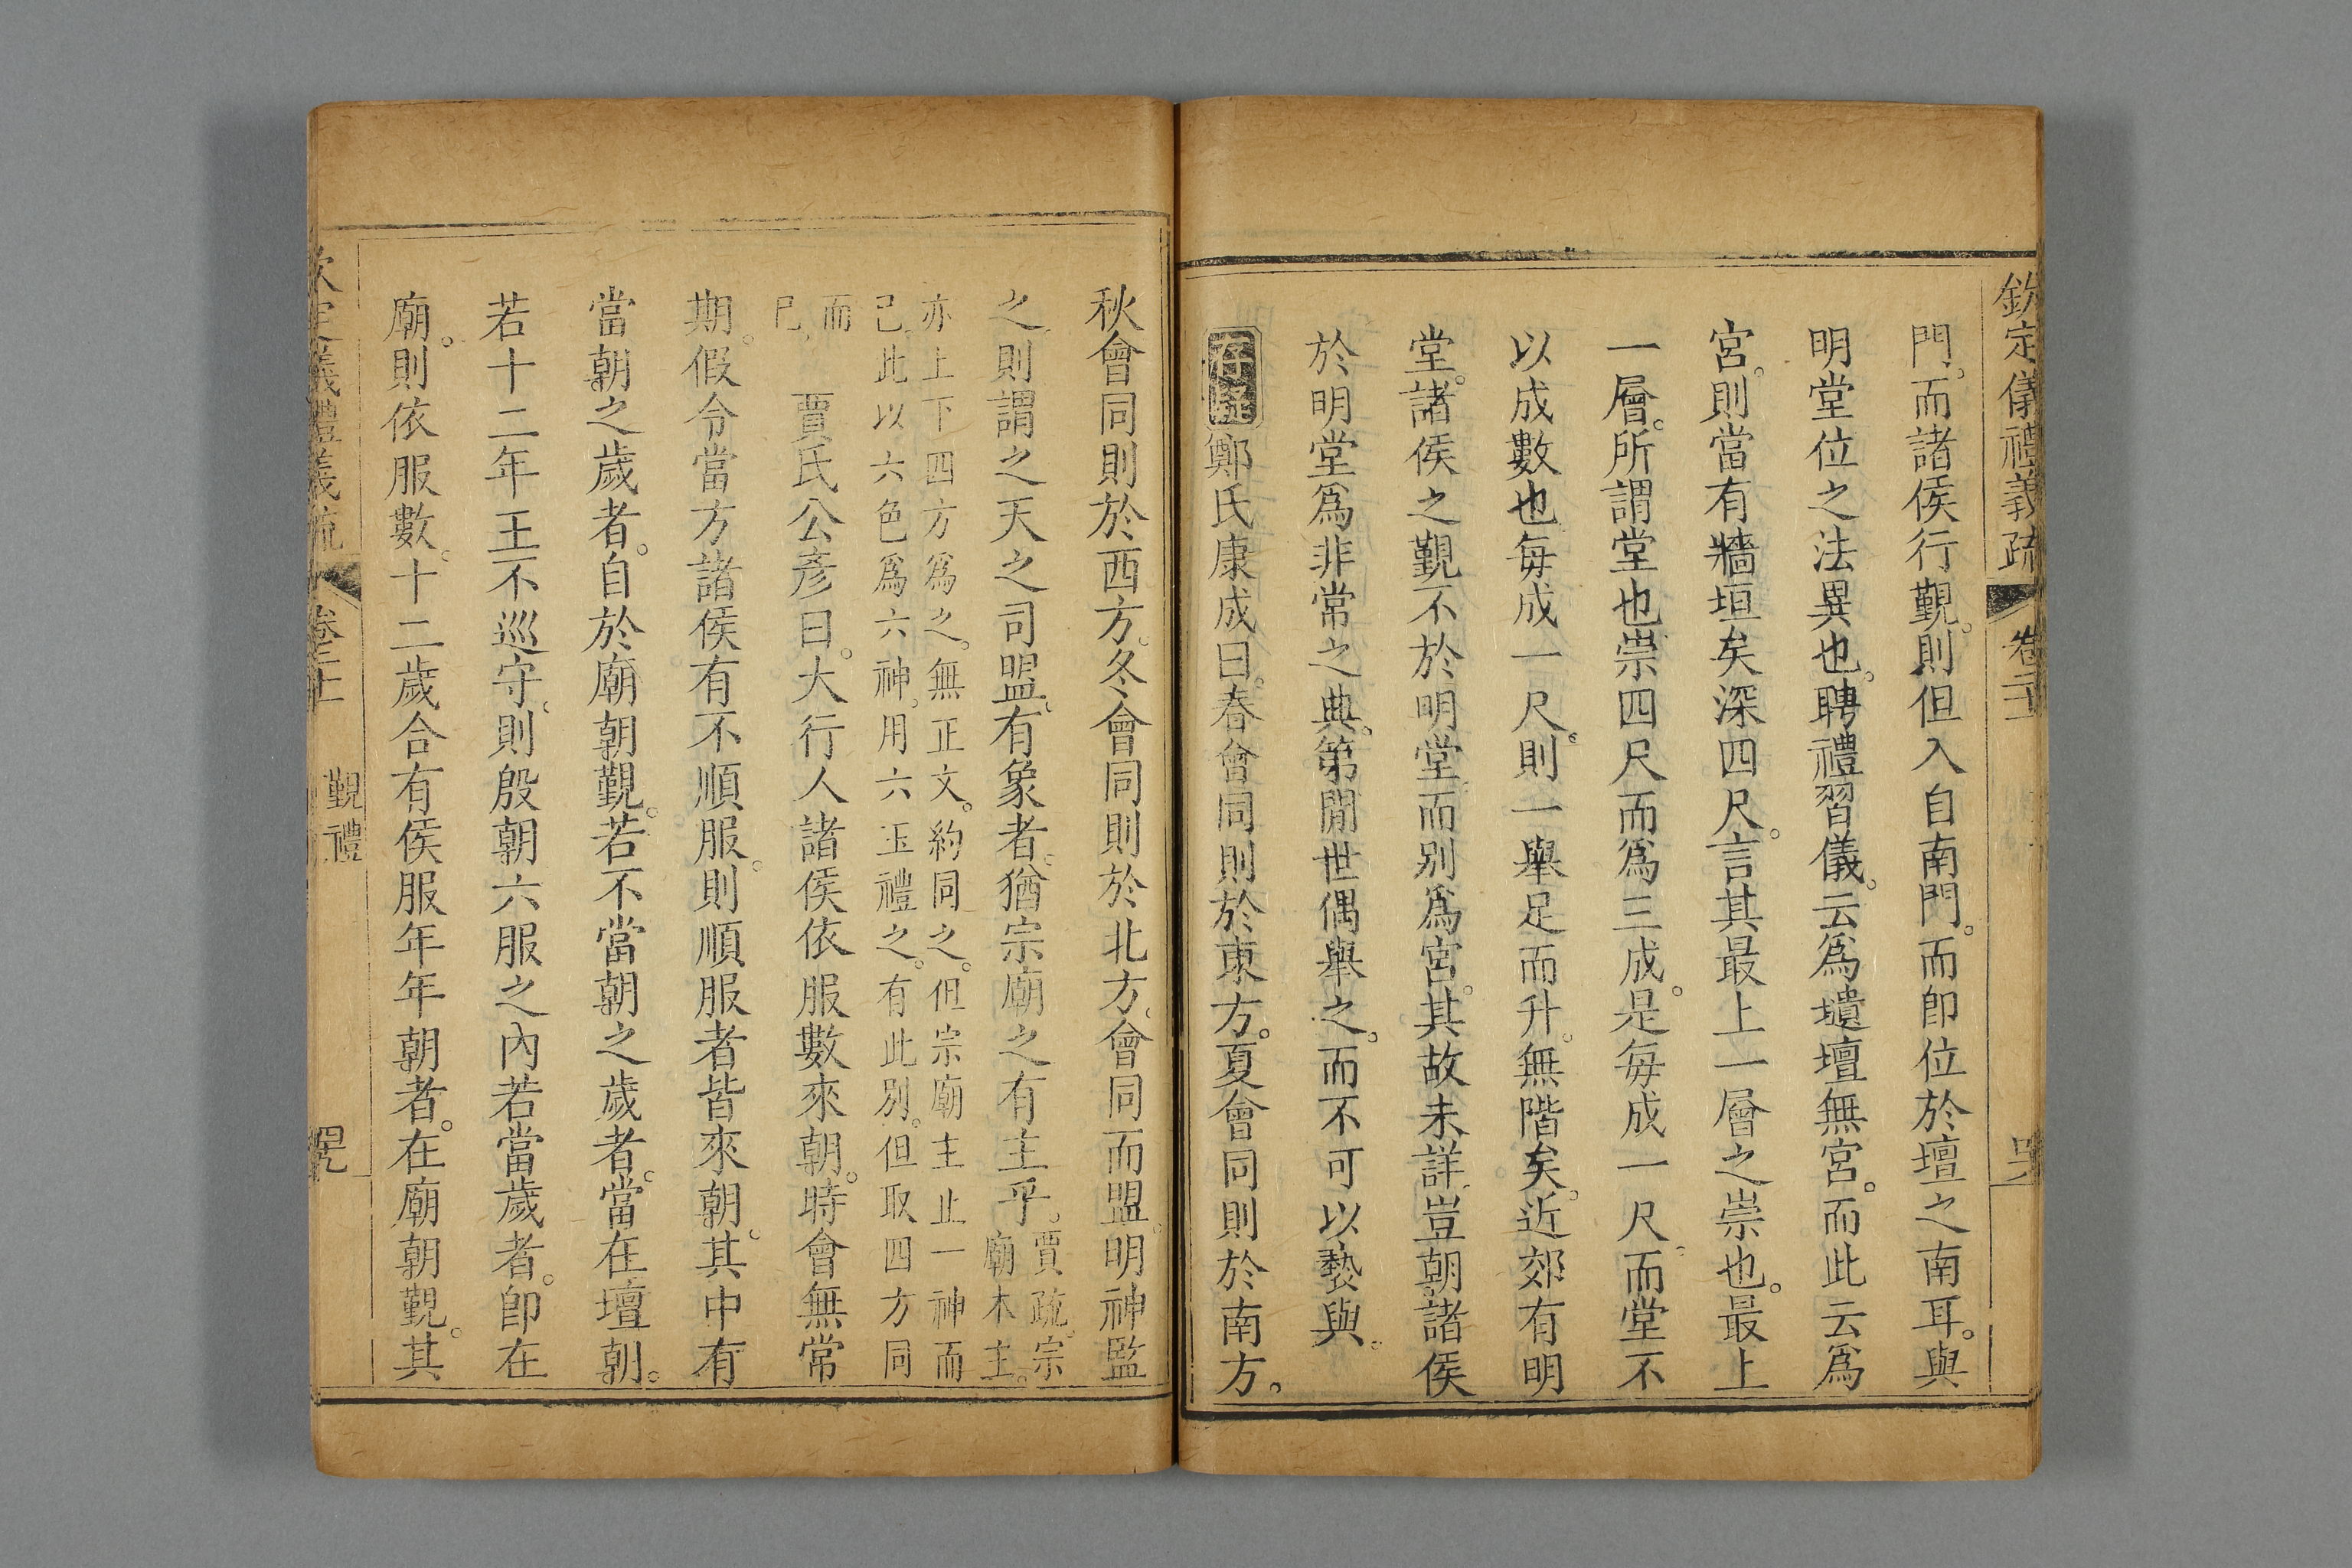 欽定儀禮義疏 卷二十
門。而諸侯行覲。則但入自南門。而卽位於壇之南耳。與
明堂位之法異也。聘禮習儀。云爲壝壇無宮。而此云爲
宮。則當有牆垣矣深四尺。言其最上一層之崇也。最上
一層。所謂堂也崇四尺而爲三成。是每成一尺。而堂不
以成數也。每成一尺。則一舉足而升。無階矣。近郊有明
堂。諸侯之覲不於明堂。而別爲宮。其故未詳。豈朝諸侯
於明堂爲非常之典。第閒世偶舉之。而不可以褻與。
存疑鄭氏康成曰。春會同則於東方。夏會同則於南方。
秋會同則於西方。冬會同則於北方。會同而盟。明神監
之。則謂之天之司盟。有象者。猶宗廟之有主乎。賈疏。宗
廟木主。
亦上下四方爲之。無正文。約同之。但宗廟主止一神而
已。此以六色爲六神。用六玉禮之。有此別。但取四方同
而
已。
賈氏公彥曰。大行人諸侯依服數來朝。時會無常
期。假令當方諸侯有不順服。則順服者皆來朝。其中有
當朝之歲者。自於廟朝覲。若不當朝之歲者。當在壇朝。
若十二年王不巡守。則殷朝六服之內若當歲者。卽在
廟。則依服數。十二歲合有侯服年年朝者。在廟朝覲。其
欽定儀禮義疏 卷二十 覲禮